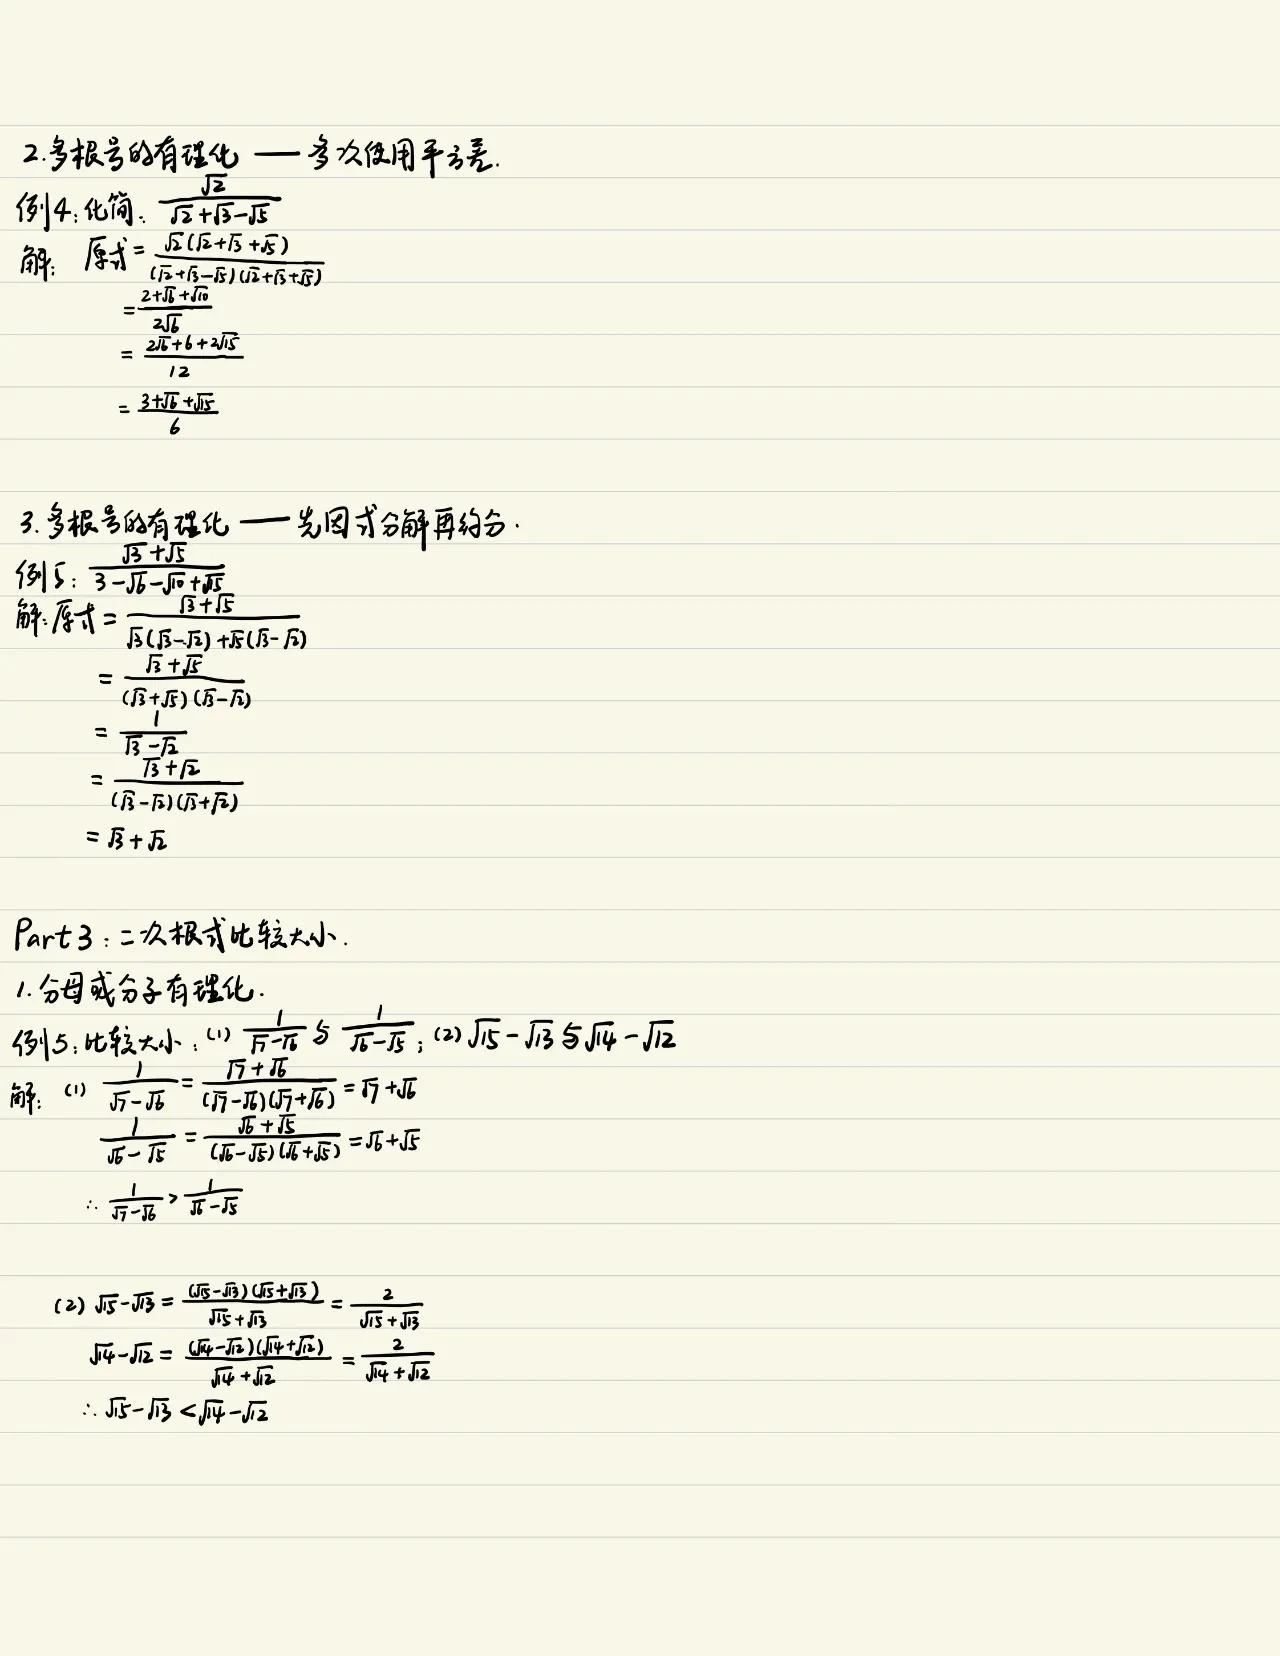 2.多根号的有理化 —— 多次使用平方差.
例4:化简: \frac{√2}{√2+√3-√5}
解: 原式 = \frac{√2(√2+√3+√5)}{(√2+√3-√5)(√2+√3+√5)}
= \frac{2+√6+√10}{2√6}
= \frac{2√6+6+2√15}{12}
= \frac{3+√6+√15}{6}
3.多根号的有理化 —— 先因式分解再约分.
例5: \frac{√3+√5}{3-√6-√10+√15}
解:原式 = \frac{√3+√5}{√3(√3-√2)+√5(√3-√2)}
= \frac{√3+√5}{(√3+√5)(√3-√2)}
= \frac{1}{√3-√2}
= \frac{√3+√2}{(√3-√2)(√3+√2)}
= √3+√2
Part3:二次根式比较大小.
1.分母或分子有理化.
例5:比较大小:(1) \frac{1}{√7-√6} 与 \frac{1}{√6-√5}; (2) √15-√13与√14-√12
解: (1) \frac{1}{√7-√6} = \frac{√7+√6}{(√7-√6)(√7+√6)} = √7+√6
\frac{1}{√6-√5} = \frac{√6+√5}{(√6-√5)(√6+√5)} = √6+√5
∴ \frac{1}{√7-√6} > \frac{1}{√6-√5}
(2) √15-√13 = \frac{(√15-√13)(√15+√13)}{√15+√13} = \frac{2}{√15+√13}
√14-√12 = \frac{(√14-√12)(√14+√12)}{√14+√12} = \frac{2}{√14+√12}
∴ √15-√13 < √14-√12